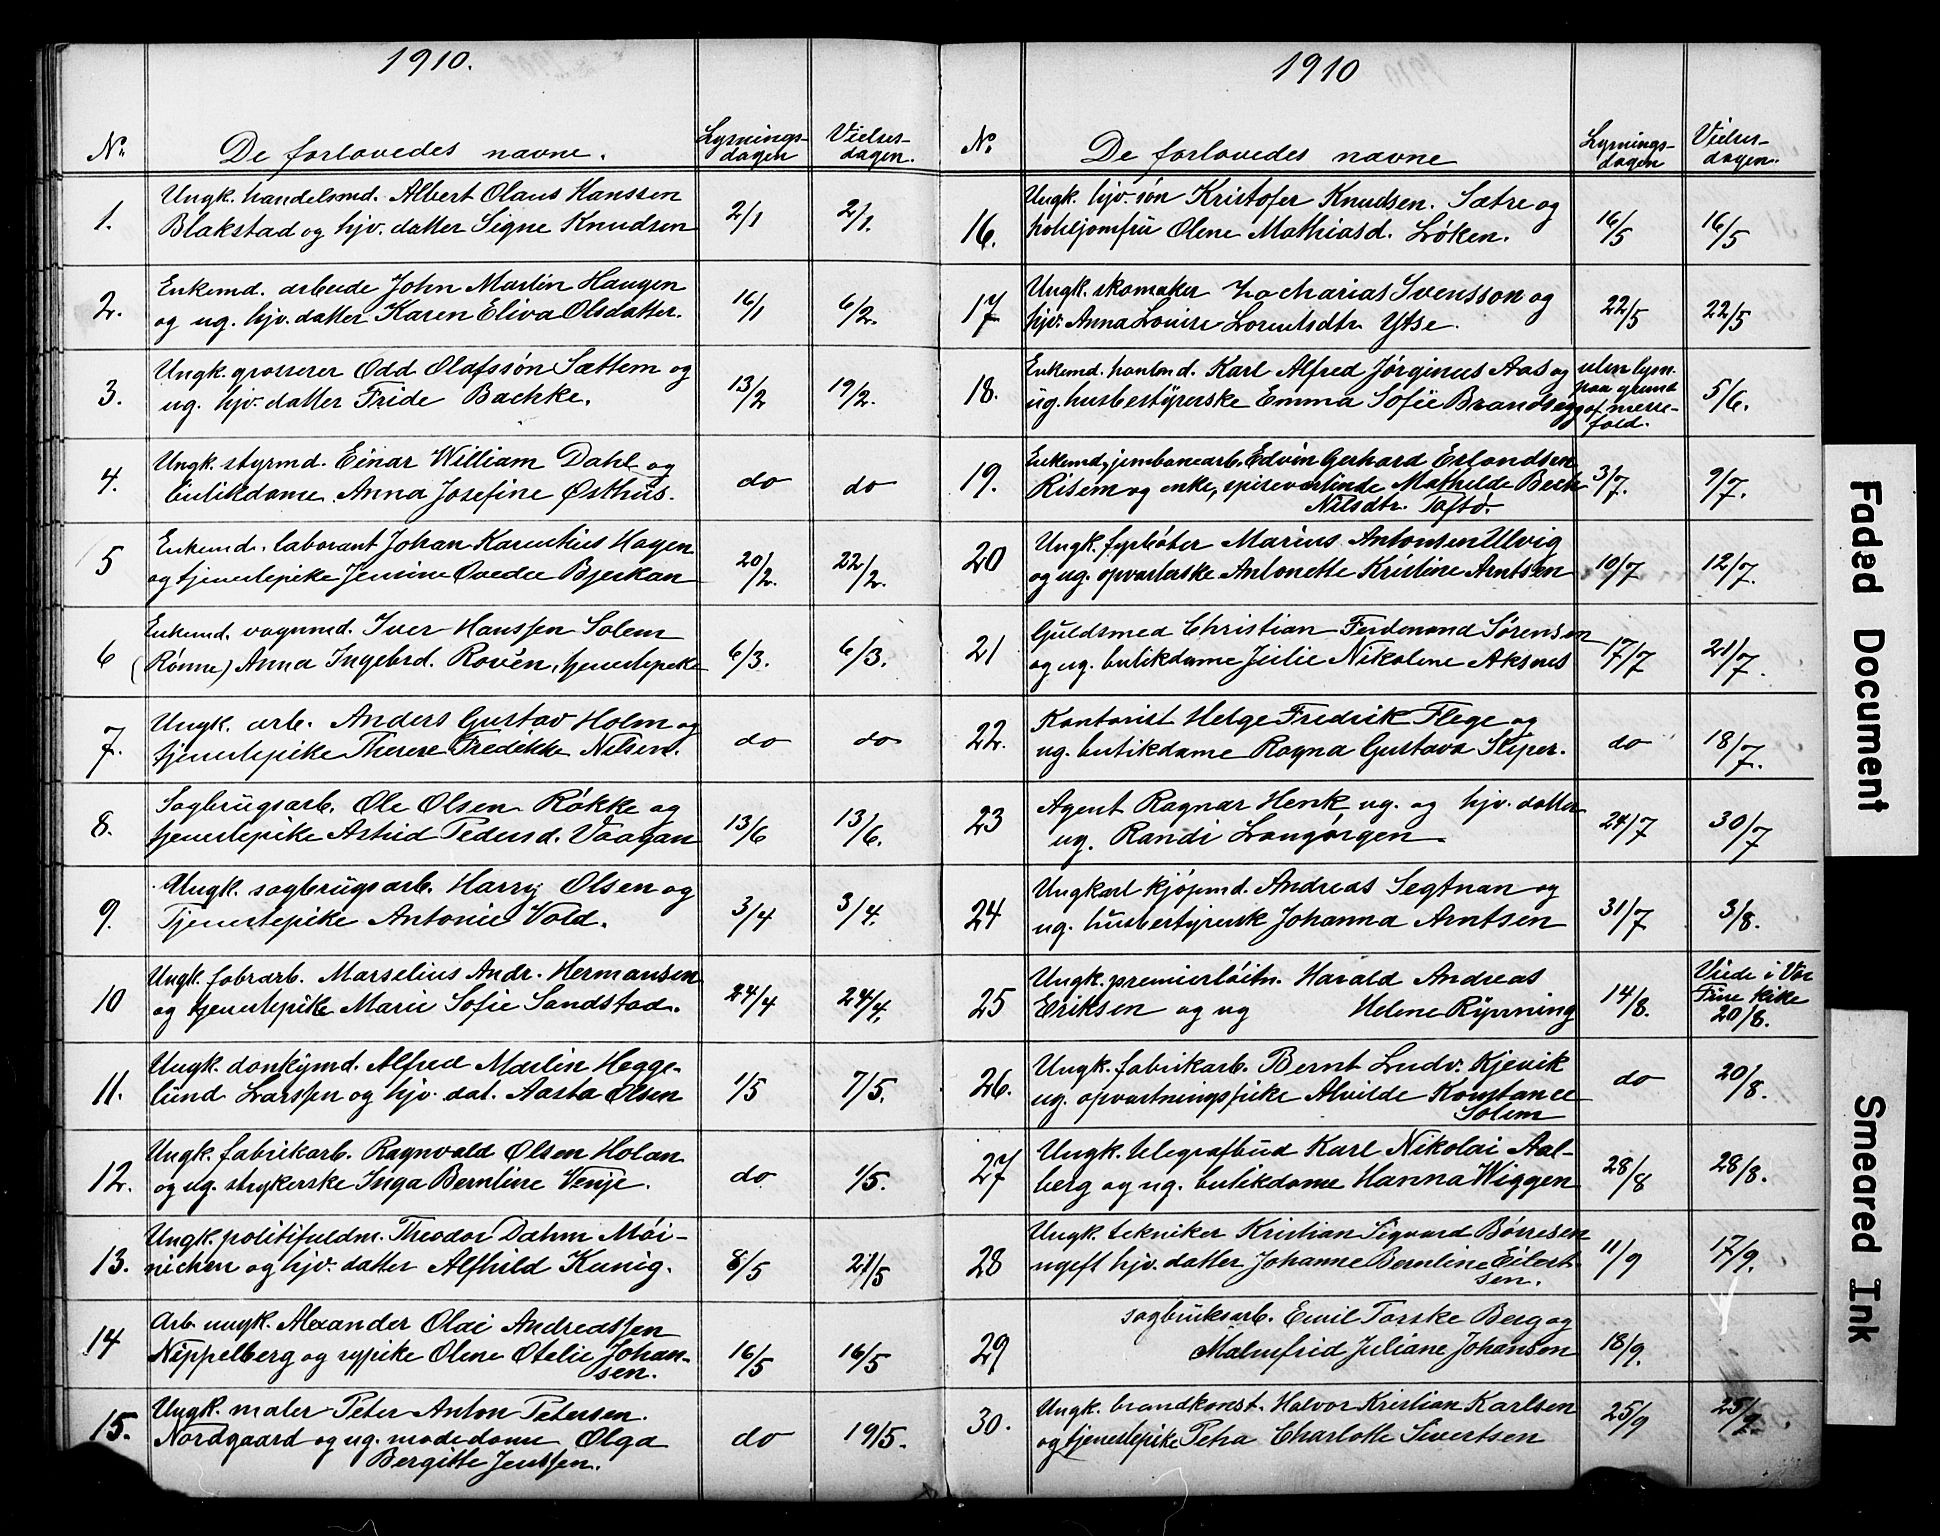 1910.
Nr. De forlovedes navne. Lysnings-dagen Vielses-dagen.
1. Ungk. handelsmd. Albert Olaus Hanssen
Blakstad og hjv. datter Signe Knudsen 2/1 2/1.
2. Enkemd. arbeide John Martin Haugen
og ug. hjv. datter Karen Eliva Olsdatter. 16/1 6/2.
3. Ungk. grosserer Odd Olafssøn Sættem og
ug. hjv. datter Fride Bachke. 13/2 19/2.
4. Ungk. styrmd. Einar William Dahl og
butikdame Anna Josefine Østhus. do do
5 Enkemd. laborant Johan Karentius Hagen
og tjenestepike Jensine Ovedee Bjerkan 20/2. 22/2.
6 Enkemd. vognmd. Iver Hanssen Solem
(Rønne) Anna Ingebrd. Rovén, tjenestepike 6/3. 6/3.
7. Ungk. arb. Anders Gustav Holm og
tjenestepike Therese Fredikke Nilsen. do do
8. Sagbrugsarb. Ole Olsen Røkke og
tjenestepike Astrid Pedersd. Vaagan 13/6 13/6.
9. Ungk. sagbrugsarb. Harry Olsen og
Tjenestepike Antonie Vold. 3/4 3/4.
10 Ungk. fabrarb. Marselius Andr. Hermansen
og tjenestepike Marie Sofie Sandstad. 24/4 24/4.
11. Ungk. donkymd. Alfred Martin Hegge-
lund Larssen og hjv. dat. Aasta Olsen 1/5 7/5.
12. Ungk. fabrikarb. Ragnvald Olsen Holan
og ug. strykerske Inga Berntine Venje. do 1/5.
13. Ungk. politifuldm. Theodor Dahm Møi-
nichen og hjv. datter Alfhild Kunig. 8/5 21/5
14 Arb. ungk. Alexander Olai Andreassen
Nippelberg og sypike Olene Otelie Johan-
sen. 16/5 16/5
15. Ungk. maler Peter Anton Petersen
Nordgaard og ug. modedame Olga
Bergitte Jenssen. do 19/5.
1910
Nr. De forlovedes navne Lysnings-dagen Vielses-dagen.
16. Ungk. hjv. søn Kristofer Knudsen. Sætre og
hoteljomfru Olene Mathiasd. Løken. 16/5 16/5
17 Ungk. skomaker Zacharias Svensson og
hjv. Anna Louise Lorentsdtr. Ytse. 22/5 22/5
18. Enkemd. hanlsmd. Karl Alfred Jørginus Aas og
ug. husbestyrerske Emma Sofie Brandsegg uten lysn. paa grund af messe-fald. 5/6.
19. Enkemd, jernbanearb. Edvin Gerhard Erlandsen
Risem og enke, spisevertinde Mathilde Berh
Nilsdtr. Taftø. 3/7. 9/7.
20 Ungk. fyrbøter Marius Antonsen Ulvig
og ug. opvarterske Antonette Kristine Arntsen 10/7 12/7.
21 Guldsmed Christian Ferdinand Sørensen
og ug. butikdame Julie Nikoline Aksnes 17/7 21/7.
22. Kontorist Helge Fredrik Flege og
ug. butikdame Ragna Gustava Sliper. do 18/7.
23 Agent Ragnar Henk ug. og hjv. datter
ug. Randi Langørgen. 24/7 30/7
24 Ungkarl kjøpmd. Andreas Segtnan og
ug. husbestyrersk Johanna Arntsen 31/7 3/8.
25 Ungk. premierløitn. Harald Andreas
Eriksen og ug Helene Rynning 14/8. Viede i Vor Frue kirke 20/8.
26. Ungk. fabrikarb. Bernt Ludv. Kjevik
ug. opvartningspike Alvilde Konstance
Solem do 20/8.
27 Ungk. telegrafbud Karl Nikolai Aal-
berg og ug. butikdame Hanna Wiggen 28/8 28/8.
28 Ungk. tekniker Kristian Sigvard Børresen
ugift hjv. datter Johanne Berntine Eilert-
sen. 11/9 17/9.
29 sagbruksarb. Emil Torske Berg og
Malmfrid Juliane Johansen 18/9.
30. Ungk. brandkonst. Halvor Kristian Karlsen
og tjenestepike Petra Charlotte Sivertsen 25/9 25/9.
Faded Document
Smeared Ink